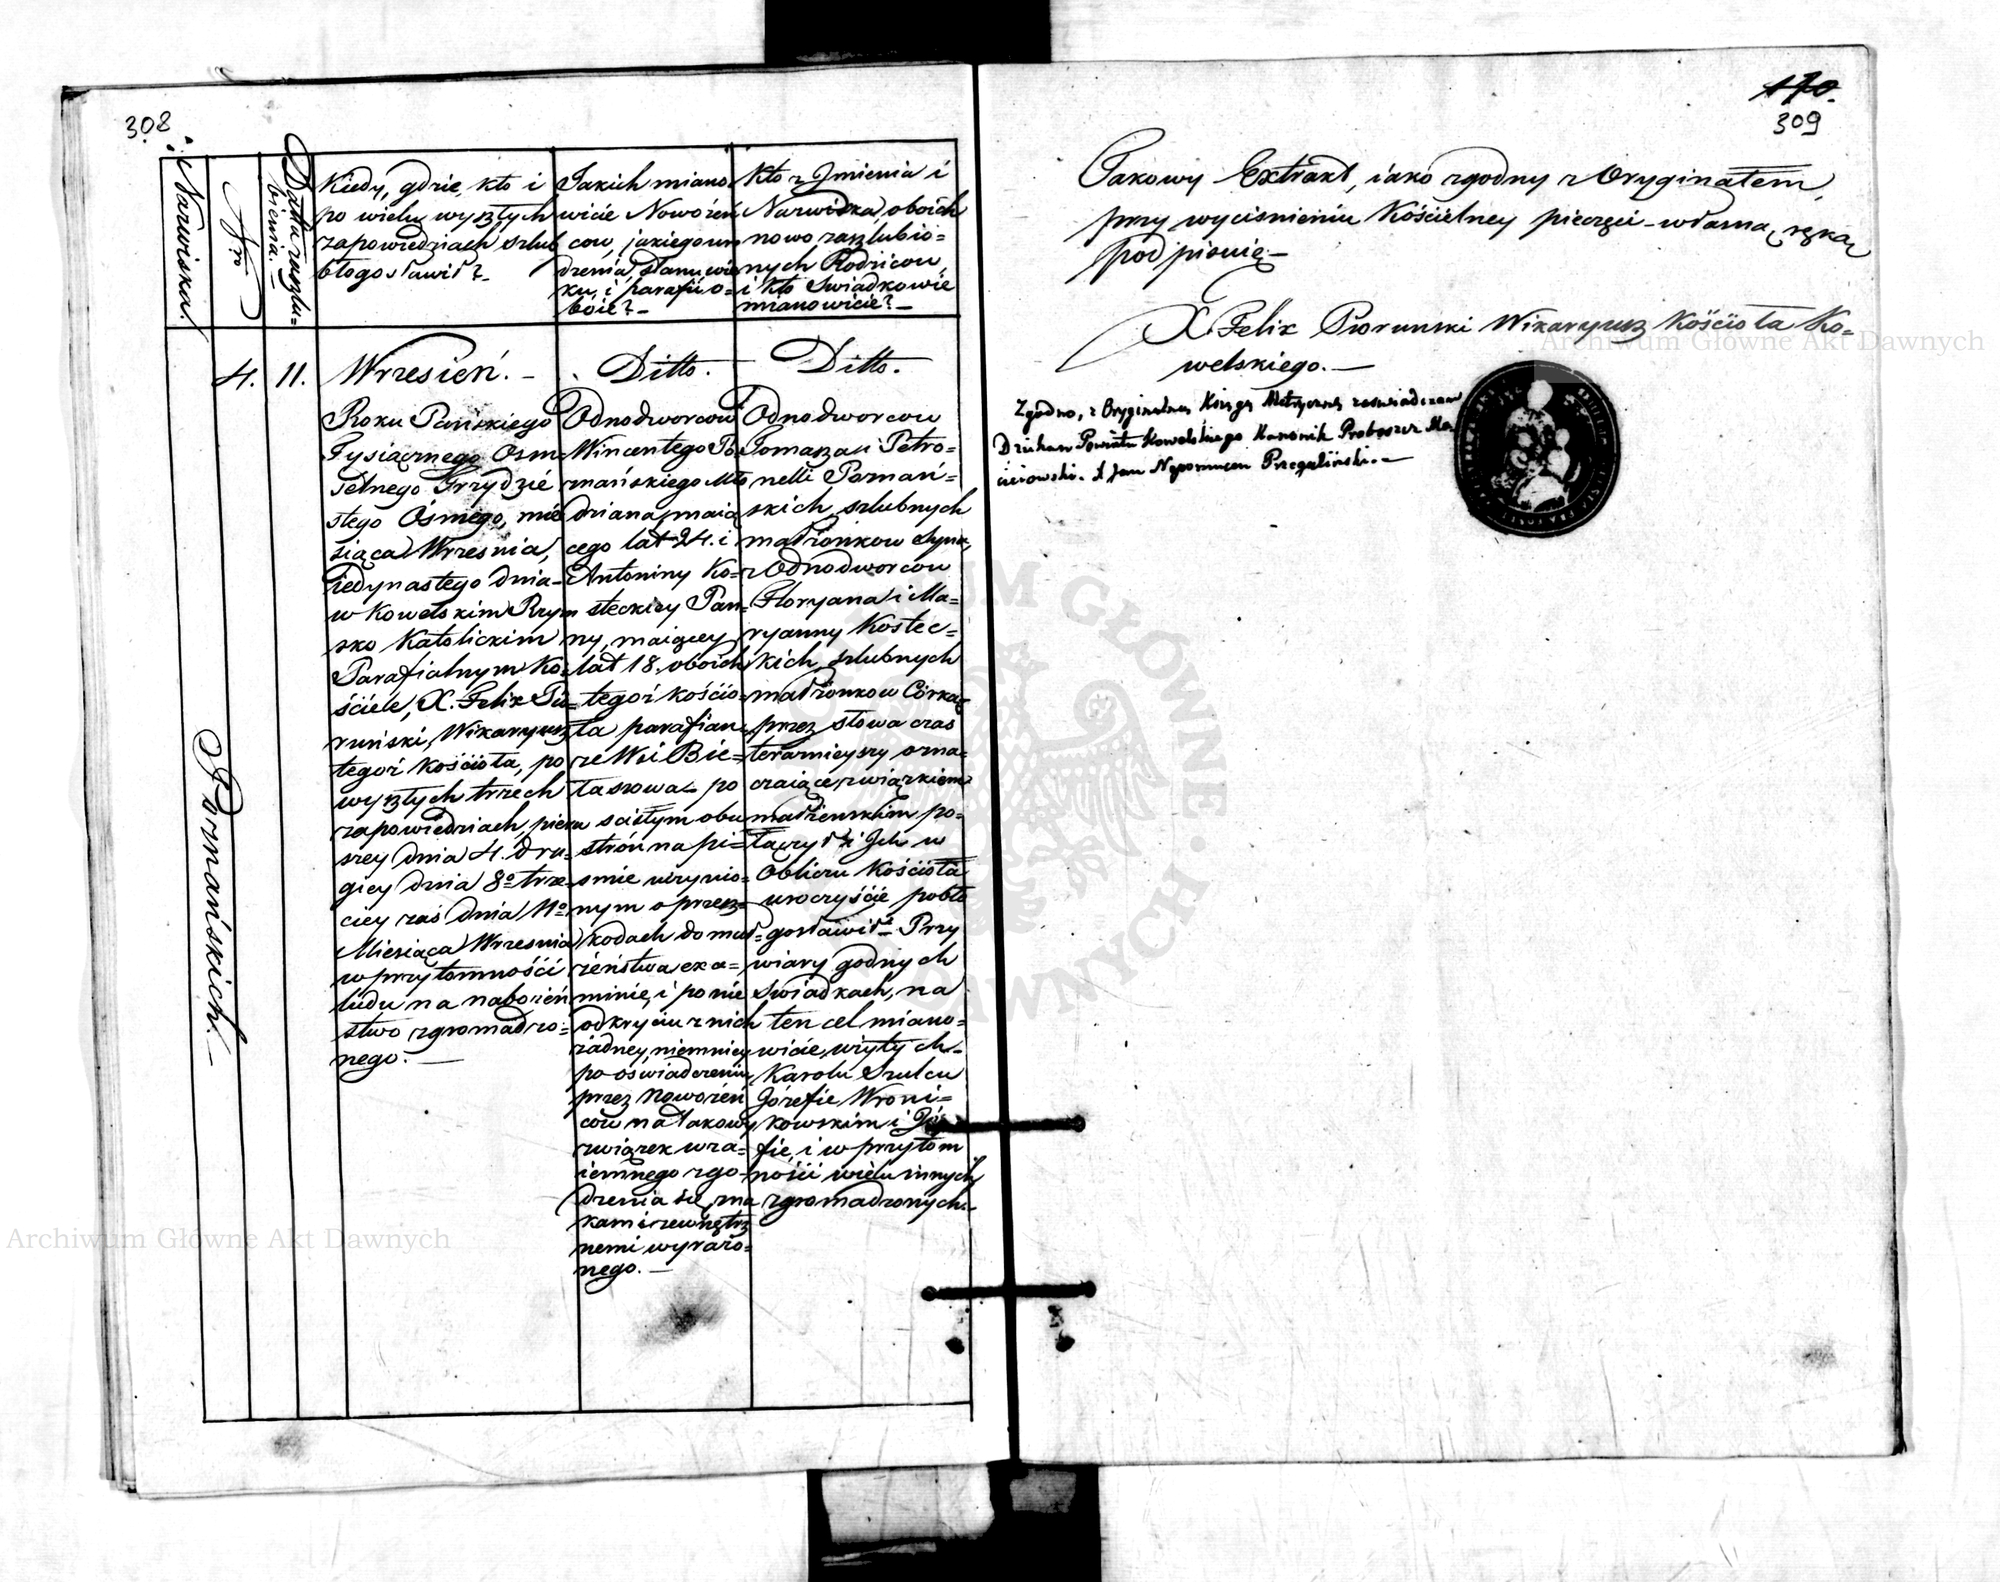 308
i Nazwiska.
Nro
Data zaślu=
bienia.
Kiedy, gdzie, kto i
po wielu wyszłych
zapowiedziach szlub
błogosławił?
Jakich miano
wicie Nowożeń
cow, jakiego uro
dzenia, stanu, wie
ku, i parafii o=
boie?
Kto z Jmienia i
Nazwiska, oboich
nowo zaszlubio=
nych Rodzicow,
i kto Swiadkowie
mianowicie?
4.
11.
Poznańskich.
Wrzesień.
Roku Pańskiego
Tysiącznego Osm
Setnego Trzydzie
stego Osmego, mie
siąca Wrzesnia,
iedynastego dnia
w Kowelskim Rzym
sko Katolickim
Parafialnym Ko=
ściele, X. Felix Pio=
runski, Wikaryusz
tegoż Kościoła, po
wyszłych trzech
zapowiedziach, pierw
szey dnia 4. dru=
giey dnia 8º trze
ciey zaś dnia 11º
Miesiąca Wrzesnia
w przytomności
ludu na nabożeń
stwo zgromadzo=
nego.
Ditto.
Odnodworcow
Wincentego Po
znańskiego Mło
dziana, maią
cego lat 24. i
Antoniny Ko=
steckiey Pan=
ny, maiącey
lat 18. oboich
tegoż Kościo=
ła parafian,
ze Wsi Bie=
lasowa po
scisłym obu
strón na pi=
smie uczynio=
nym o przesz=
kodach do mał=
żeństwa exa=
minie, i po nie
odkryciu z nich
żadney, niemniey
po oświadczeniu
przez Nowożeń
cow na takowy
związek wza=
iemnego zgo=
dzenia się, zna
kami zewnętrz
nemi wyrażo=
nego.
Ditto.
Odnodworcow
Tomasza i Petro=
nelli Poznań=
skich, szlubnych
małżonkow Syna,
z Odnodworcow
Floryana i Ma=
ryanny Kostec=
kich, szlubnych
małżonkow Córką,
przez słowa czas
teraznieyszy ozna=
czaiące, związkiem
małżenskim po=
łączył i Jch w
Obliczu Kościoła
uroczyście pobło
gosławił. Przy
wiary godnych
Swiadkach, na
ten cel miano=
wicie, wzytych
Karolu Szulcu
Józefie Wroni=
kowskim i Jó
fie, i w przytom
ności wielu innych
zgromadzonych.
170.
309
Takowy Extrakt, iako zgodny z Oryginałem,
przy wyciśnieniu Kościelney pieczęci własną ręką
podpisuię
X. Felix Piorunski Wikaryusz Kościoła Ko=
welskiego.
Zgodno, z Oryginalną Księgą Metryczną zaswiadczam
Dziekan Powiatu Kowelskiego Kanonik Proboszcz Ma
ciiowski. X Jan Nepomucen Przegaliński.
Archiwum Główne Akt Dawnych
Archiwum Główne Akt Dawnych